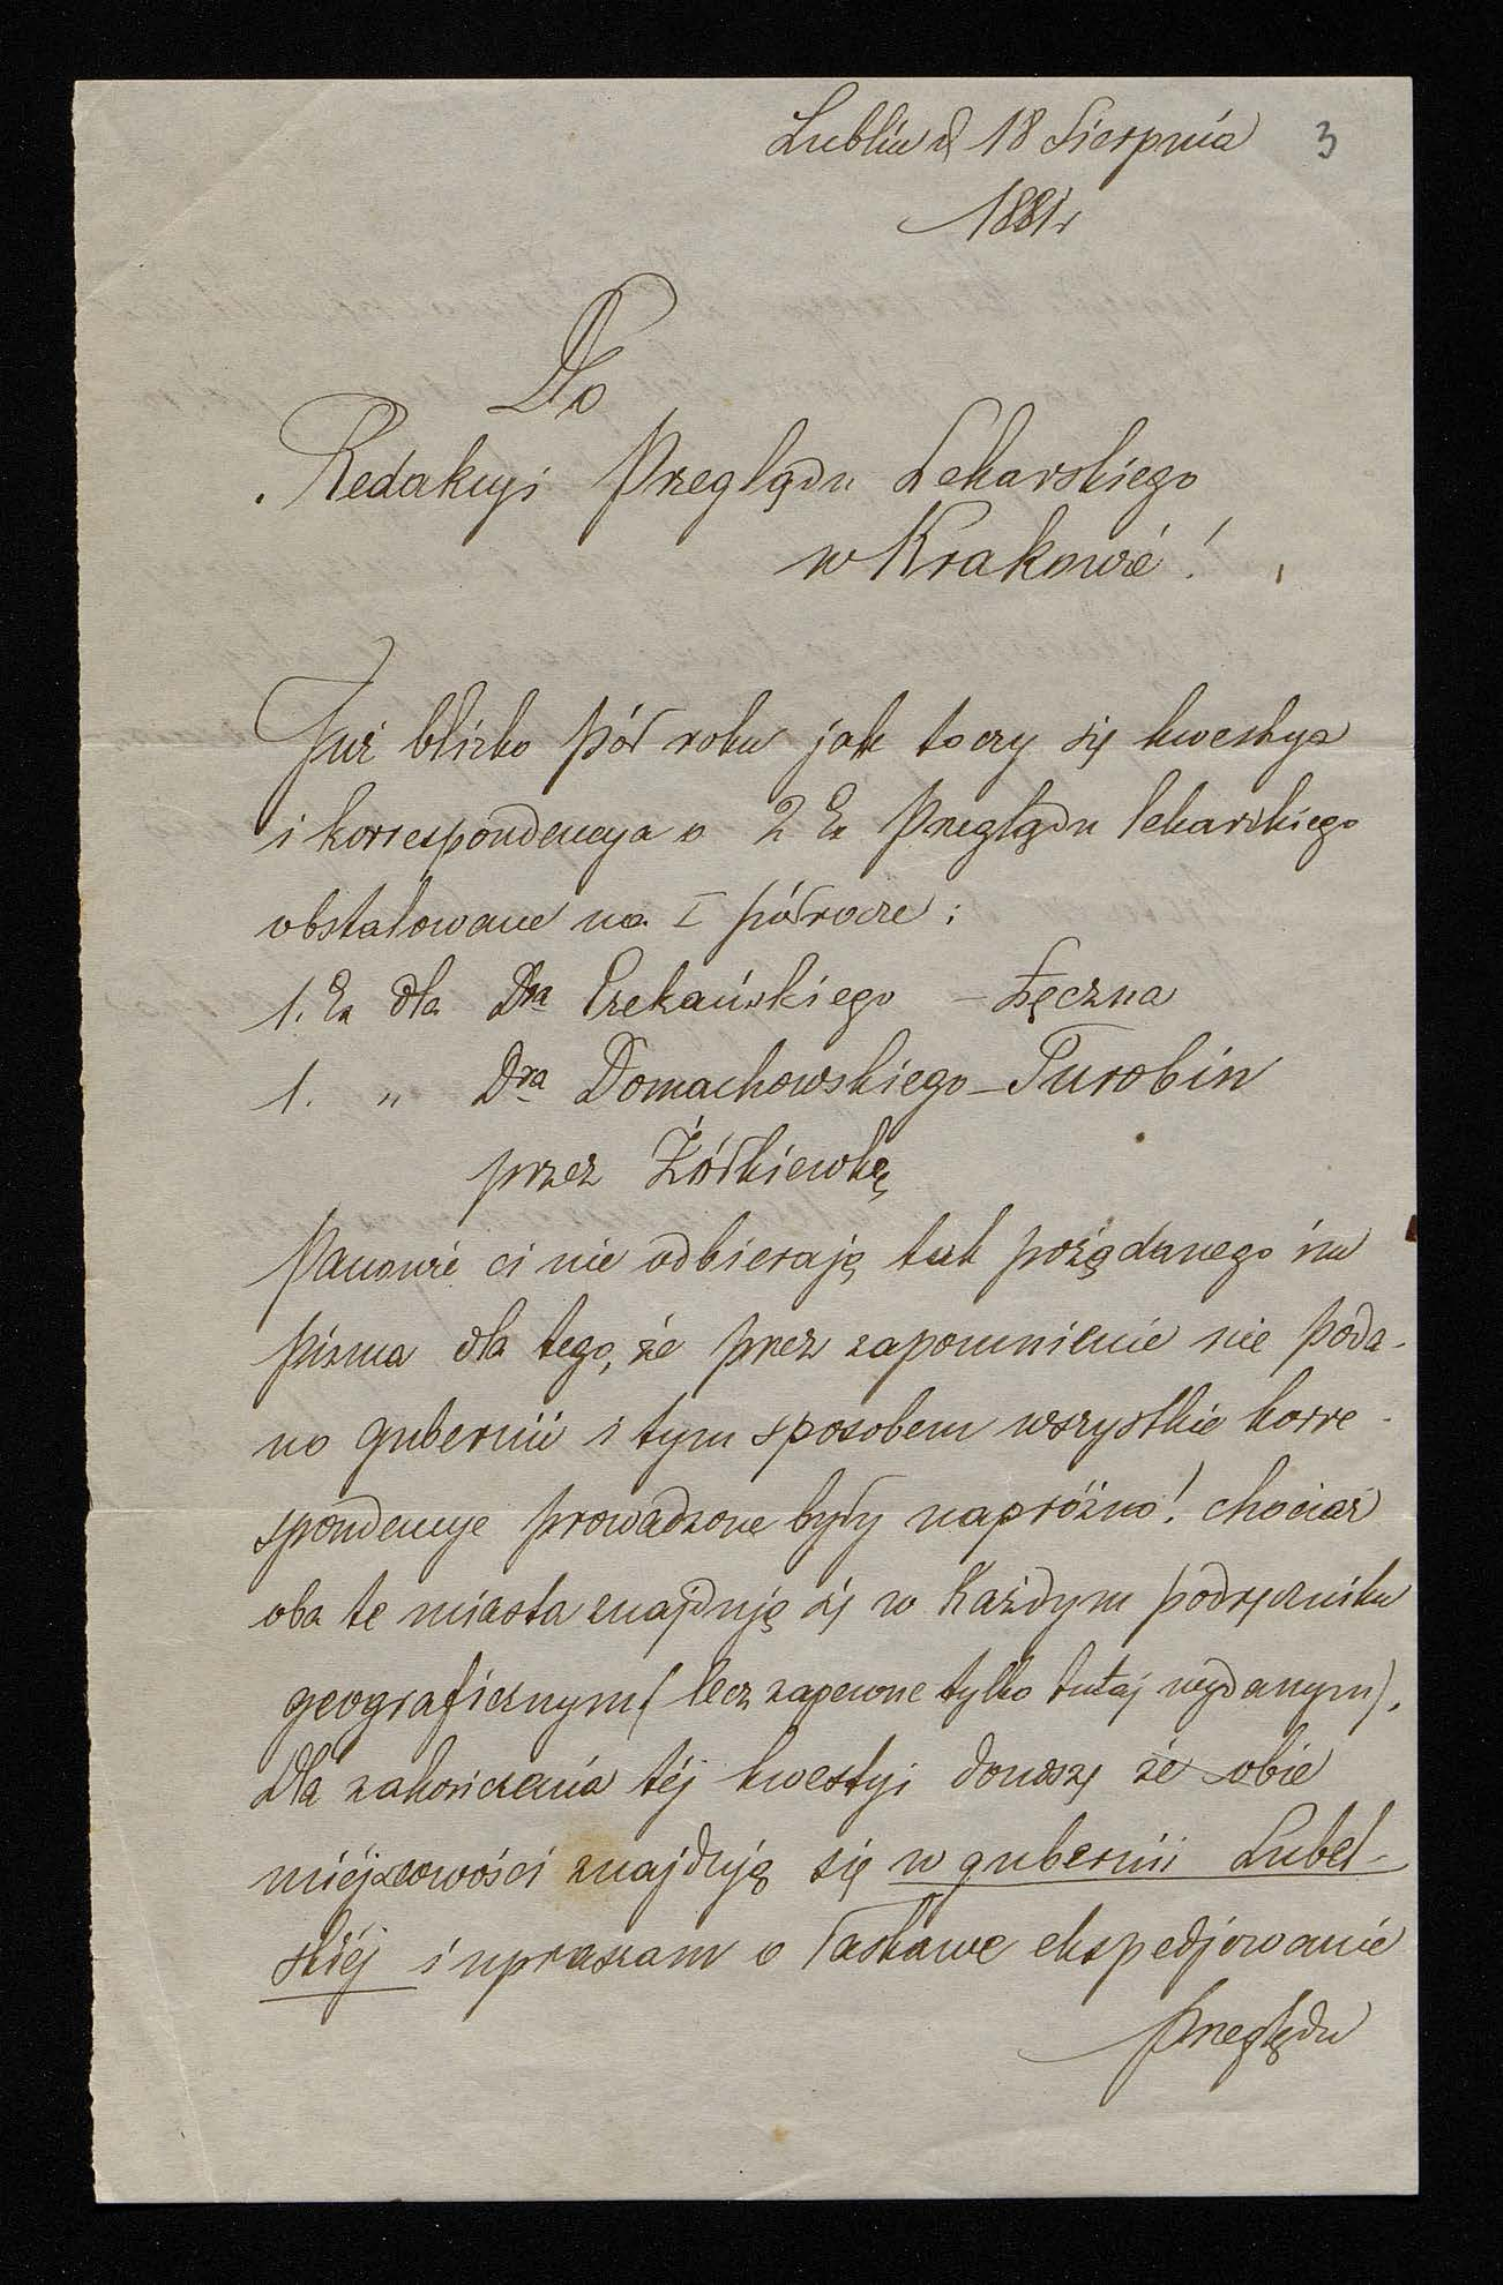 Lublin d 18 Sierpnia 3
1881r
Do
Redakcyi Przeglądu Lekarskiego
w Krakowie!
Już blizko pół roku jak toczy się kwestya
i korrespondencya o 2 Ex Przeglądu lekarskiego
obstalowane na I półrocze:
1. Ex dla Dra Czekańskiego – Łęczna
1. „ Dra Domachowskiego – Turobin
przez Żółkiewkę
Panowie ci nie odbierają tak pożądanego im
pisma dla tego, że przez zapomnienie nie poda-
no gubernii i tym sposobem wszystkie korre-
spondencye prowadzone były napróżno! chociaż
oba te miasta znajdują się w każdym podręczniku
geograficznym (lecz zapewne tylko tutaj wydanym).
Dla zakończenia téj kwestyi donoszę że obie
miéjscowości znajdują się w gubernii Lubel-
skiéj i upraszam o łaskawe ekspedjowanie
Przeglądu